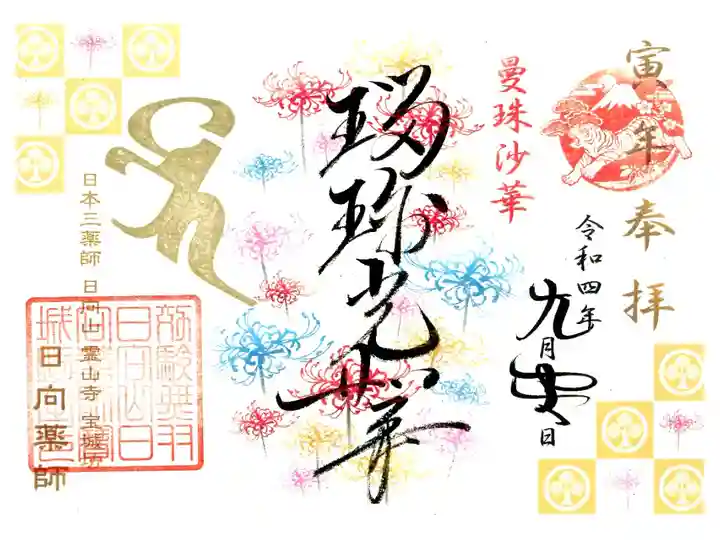 寅年奉拝
令和四年
九月 日
曼珠沙華
瑠璃光華
日本三薬師 日向山 霊山寺 宝城坊
日向薬師